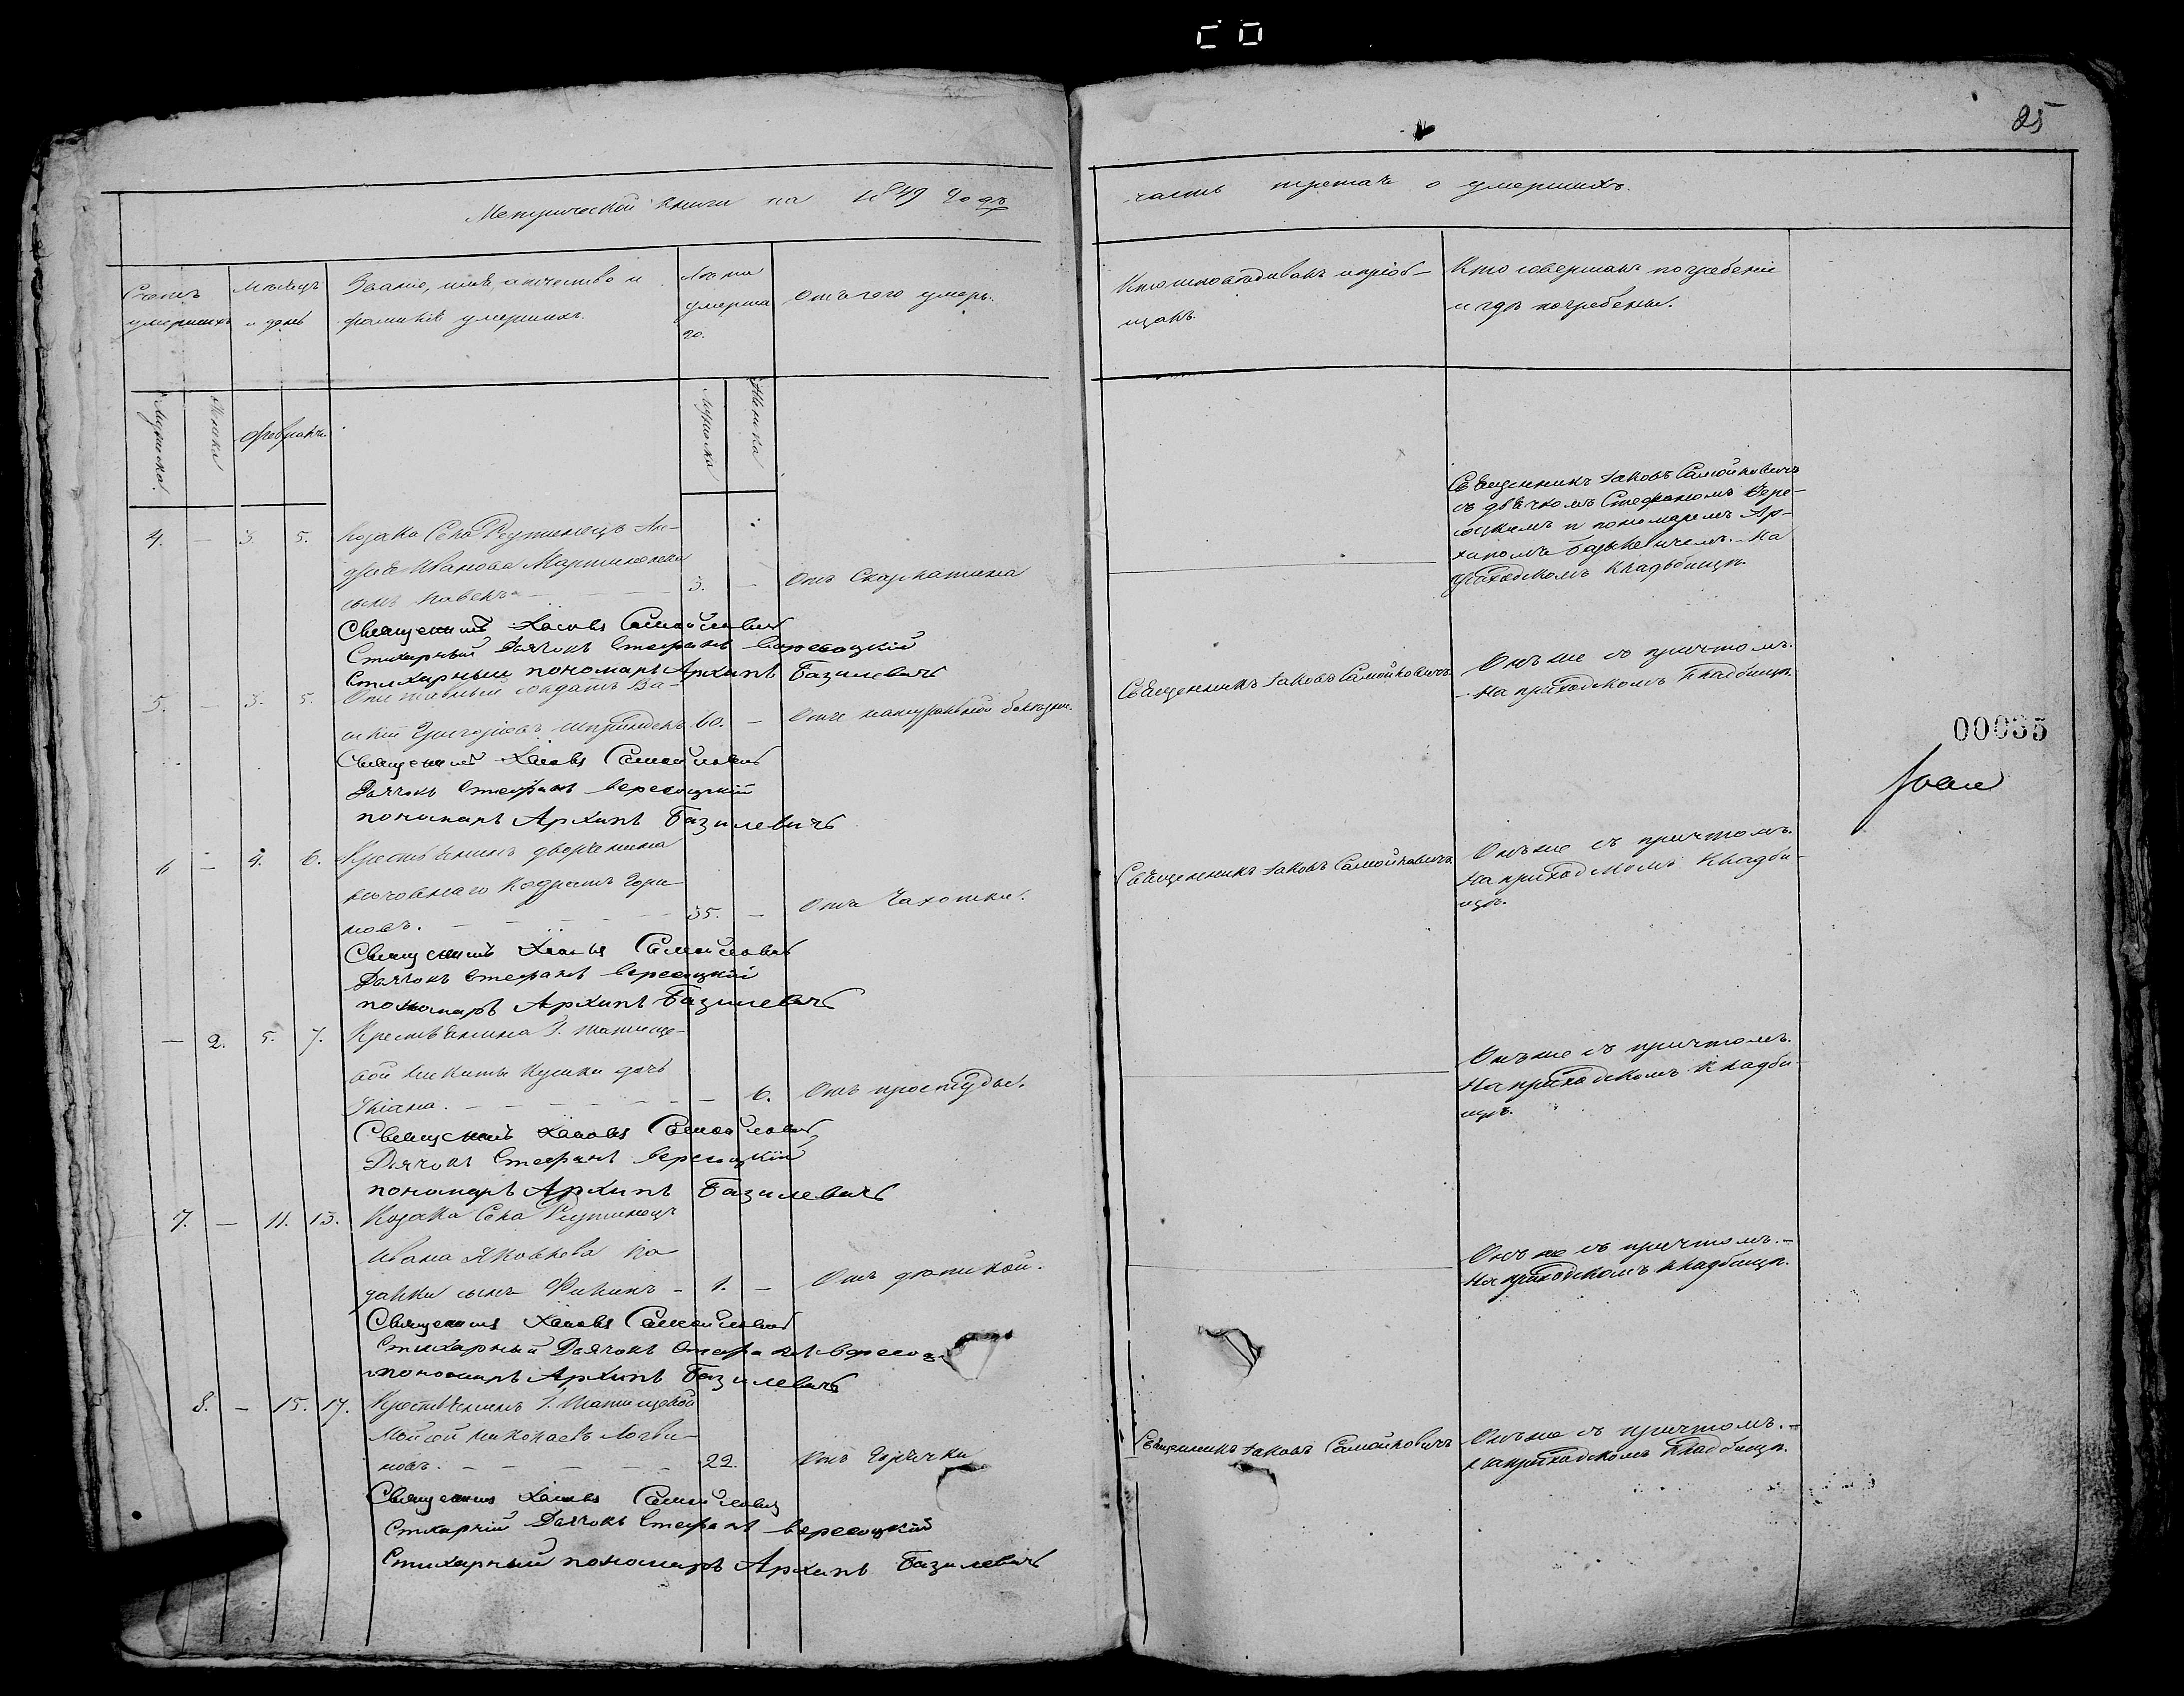 25
Метрической книги на 1849 годъ
часть третья о умершихъ.
Счетъ умершихъ
Мѣсяцъ и день
Званіе, имя, отчество и фамилія умершихъ.
Лѣта умершаго.
Отъ чего умеръ.
Кто исповѣдывалъ и пріобщалъ.
Кто совершалъ погребеніе и гдѣ погребены.
Мужеска.
Женска
Февраль.
Мужеска
Женска
4. — 3. 5. Козака Села Реутинецъ Ан-
дрея Иванова Мартиненка
сынъ Павелъ — 3. — Отъ Скарлатина
Священникъ Іаковъ Самойловичъ
съ дьячкомъ Стефаномъ Вере-
соцкимъ и пономаремъ Ар-
хипомъ Базилевичемъ. На
приходскомъ кладбищѣ.
Священникъ Іаковъ Самойловичъ
Стихарный Дьячокъ Стефанъ Вересоцкій
Стихарный пономарь Архипъ Базилевичъ
5. — 3. 5. Отставный солдатъ Ва-
силій Григорьевъ 60. — Отъ натуральной болѣзни.
Священникъ Іаковъ Самойловичъ.
Онъ же съ причтомъ.
На приходскомъ кладбищѣ.
Священникъ Іаковъ Самойловичъ
Дьячокъ Стефанъ Вересоцкій
пономарь Архипъ Базилевичъ
00035
6 — 4. 6. Крестьянинъ дворянина
Кодратъ Гори-
новъ. — 35. — Отъ Чахотки.
Священникъ Іаковъ Самойловичъ.
Онъ же съ причтомъ.
На приходскомъ кладби-
щѣ.
Священникъ Іаковъ Самойловичъ
Дьячокъ Стефанъ Вересоцкій
пономарь Архипъ Базилевичъ
— 2. 5. 7. Крестьянина Г. Татище-
вой Никиты Кушки дочь
Уліана. — — 6. Отъ простуды.
Онъ же съ причтомъ.
На приходскомъ кладби-
щѣ.
Священникъ Іаковъ Самойловичъ
Дьячокъ Стефанъ Вересоцкій
пономарь Архипъ Базилевичъ
7. — 11. 13. Козака Села Реутинецъ
Ивана Яковлева Ко-
сынъ Филипъ — 1. —
Онъ же съ причтомъ. —
На приходскомъ кладбищѣ.
Священникъ Іаковъ Самойловичъ
Стихарный Дьячокъ Стефанъ Вересоц
пономарь Архипъ Базилевичъ
8. — 15. 17. Крестьянинъ Г. Татищевой
Мойсей Николаевъ Логви-
новъ. — 22. Отъ Горячки
Священникъ Іаковъ Самойловичъ
Онъ же съ причтомъ. —
На приходскомъ кладбищѣ.
Священникъ Іаковъ Самойловичъ
Стихарній Дьячокъ Стефанъ Вересоцкій
Стихарный пономарь Архипъ Базилевичъ